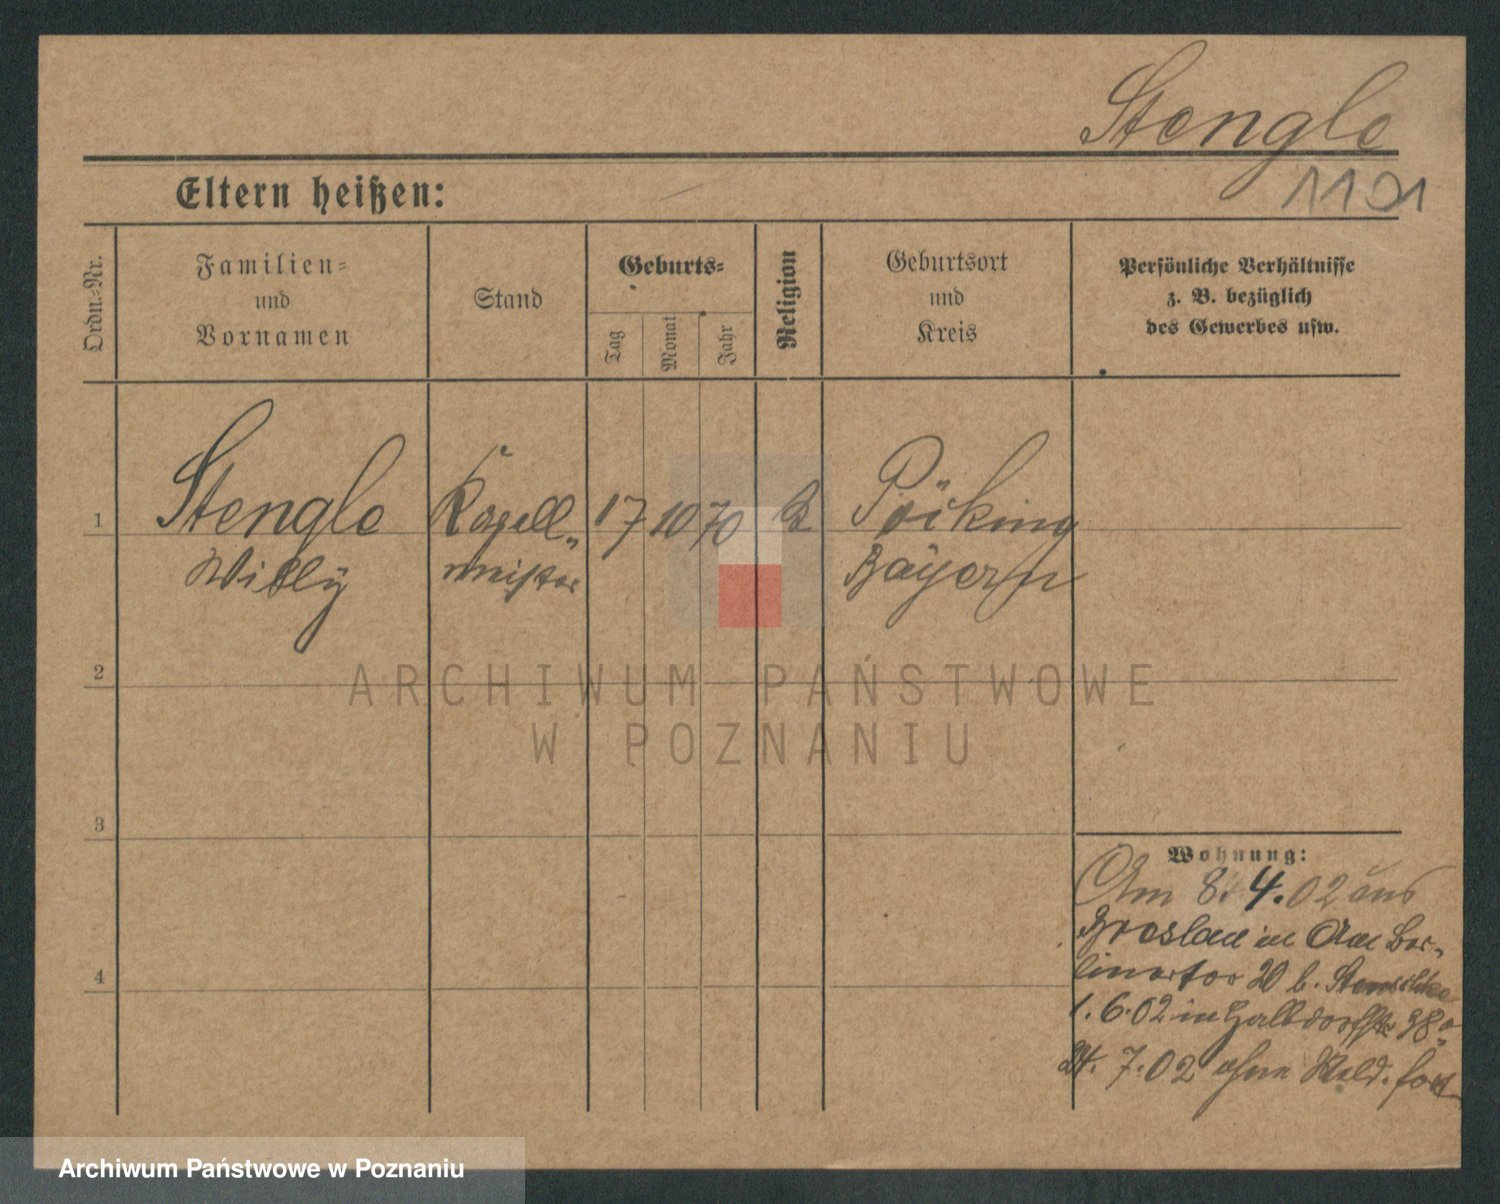 Stengle
1101
Eltern heißen:
Ordn.-Nr.
Familien-
und
Vornamen
Stand
Geburts-
Tag
Monat
Jahr
Religion
Geburtsort
und
Kreis
Persönliche Verhältnisse
z. B. bezüglich
des Gewerbes usw.
1
Stengle
Willy
Kapell-
meister
17
10
70
Pöcking
Bayern
2
3
4
Wohnung:
Am 8. 4. 02 aus
Breslau in Am Ber-
linertor 20 b.
1. 6. 02 in Halbdorfstr 38
24. 7. 02 ohne Meld. fort
ARCHIWUM PAŃSTWOWE
W POZNANIU
Archiwum Państwowe w Poznaniu